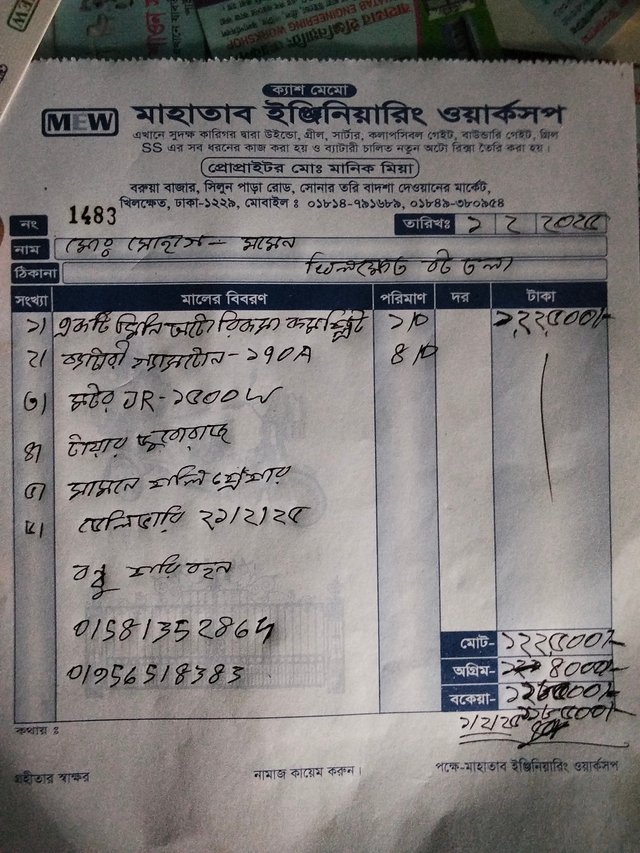 ক্যাশ মেমো
MEW মাহাতাব ইঞ্জিনিয়ারিং ওয়ার্কসপ
এখানে সুদক্ষ কারিগর দ্বারা উইন্ডো, গ্রীল, সার্টার, কলাপসিবল গেইট, বাউন্ডারি গেইট, গ্রিল
SS এর সব ধরনের কাজ করা হয় ও ব্যাটারী চালিত নতুন অটো রিক্সা তৈরি করা হয়।
প্রোপ্রাইটর মোঃ মানিক মিয়া
বরুয়া বাজার, সিলুন পাড়া রোড, সোনার তরি বাদশা দেওয়ানের মার্কেট,
খিলক্ষেত, ঢাকা-১২২৯, মোবাইল : ০১৮১৪-৭৯১৬৮৯, ০১৮৪৯-৩৮০৯৫৪
নং 1483 তারিখঃ ১ ২ ২০২৫
নাম মোঃ
ঠিকানা খিলক্ষেত বট তলা
সংখ্যা মালের বিবরণ পরিমাণ দর টাকা
১) একটি মিনি অটো রিকসা কমপ্লিট ১ P ১২২৫০০/-
২) ব্যাটারী ১৭০A ৪ P
৩) মটর JR-১৫০০W
৪) টায়ার
৫) সামনে
৬) ডেলিভারি ২১/২/২৫
বন্ধু
01581352864
01956518383
মোট- ১২২৫০০/-
অগ্রিম- 8000/-
বকেয়া-
১/২/২৫
কথায় :
গ্রহীতার স্বাক্ষর নামাজ কায়েম করুন। পক্ষে-মাহাতাব ইঞ্জিনিয়ারিং ওয়ার্কসপ